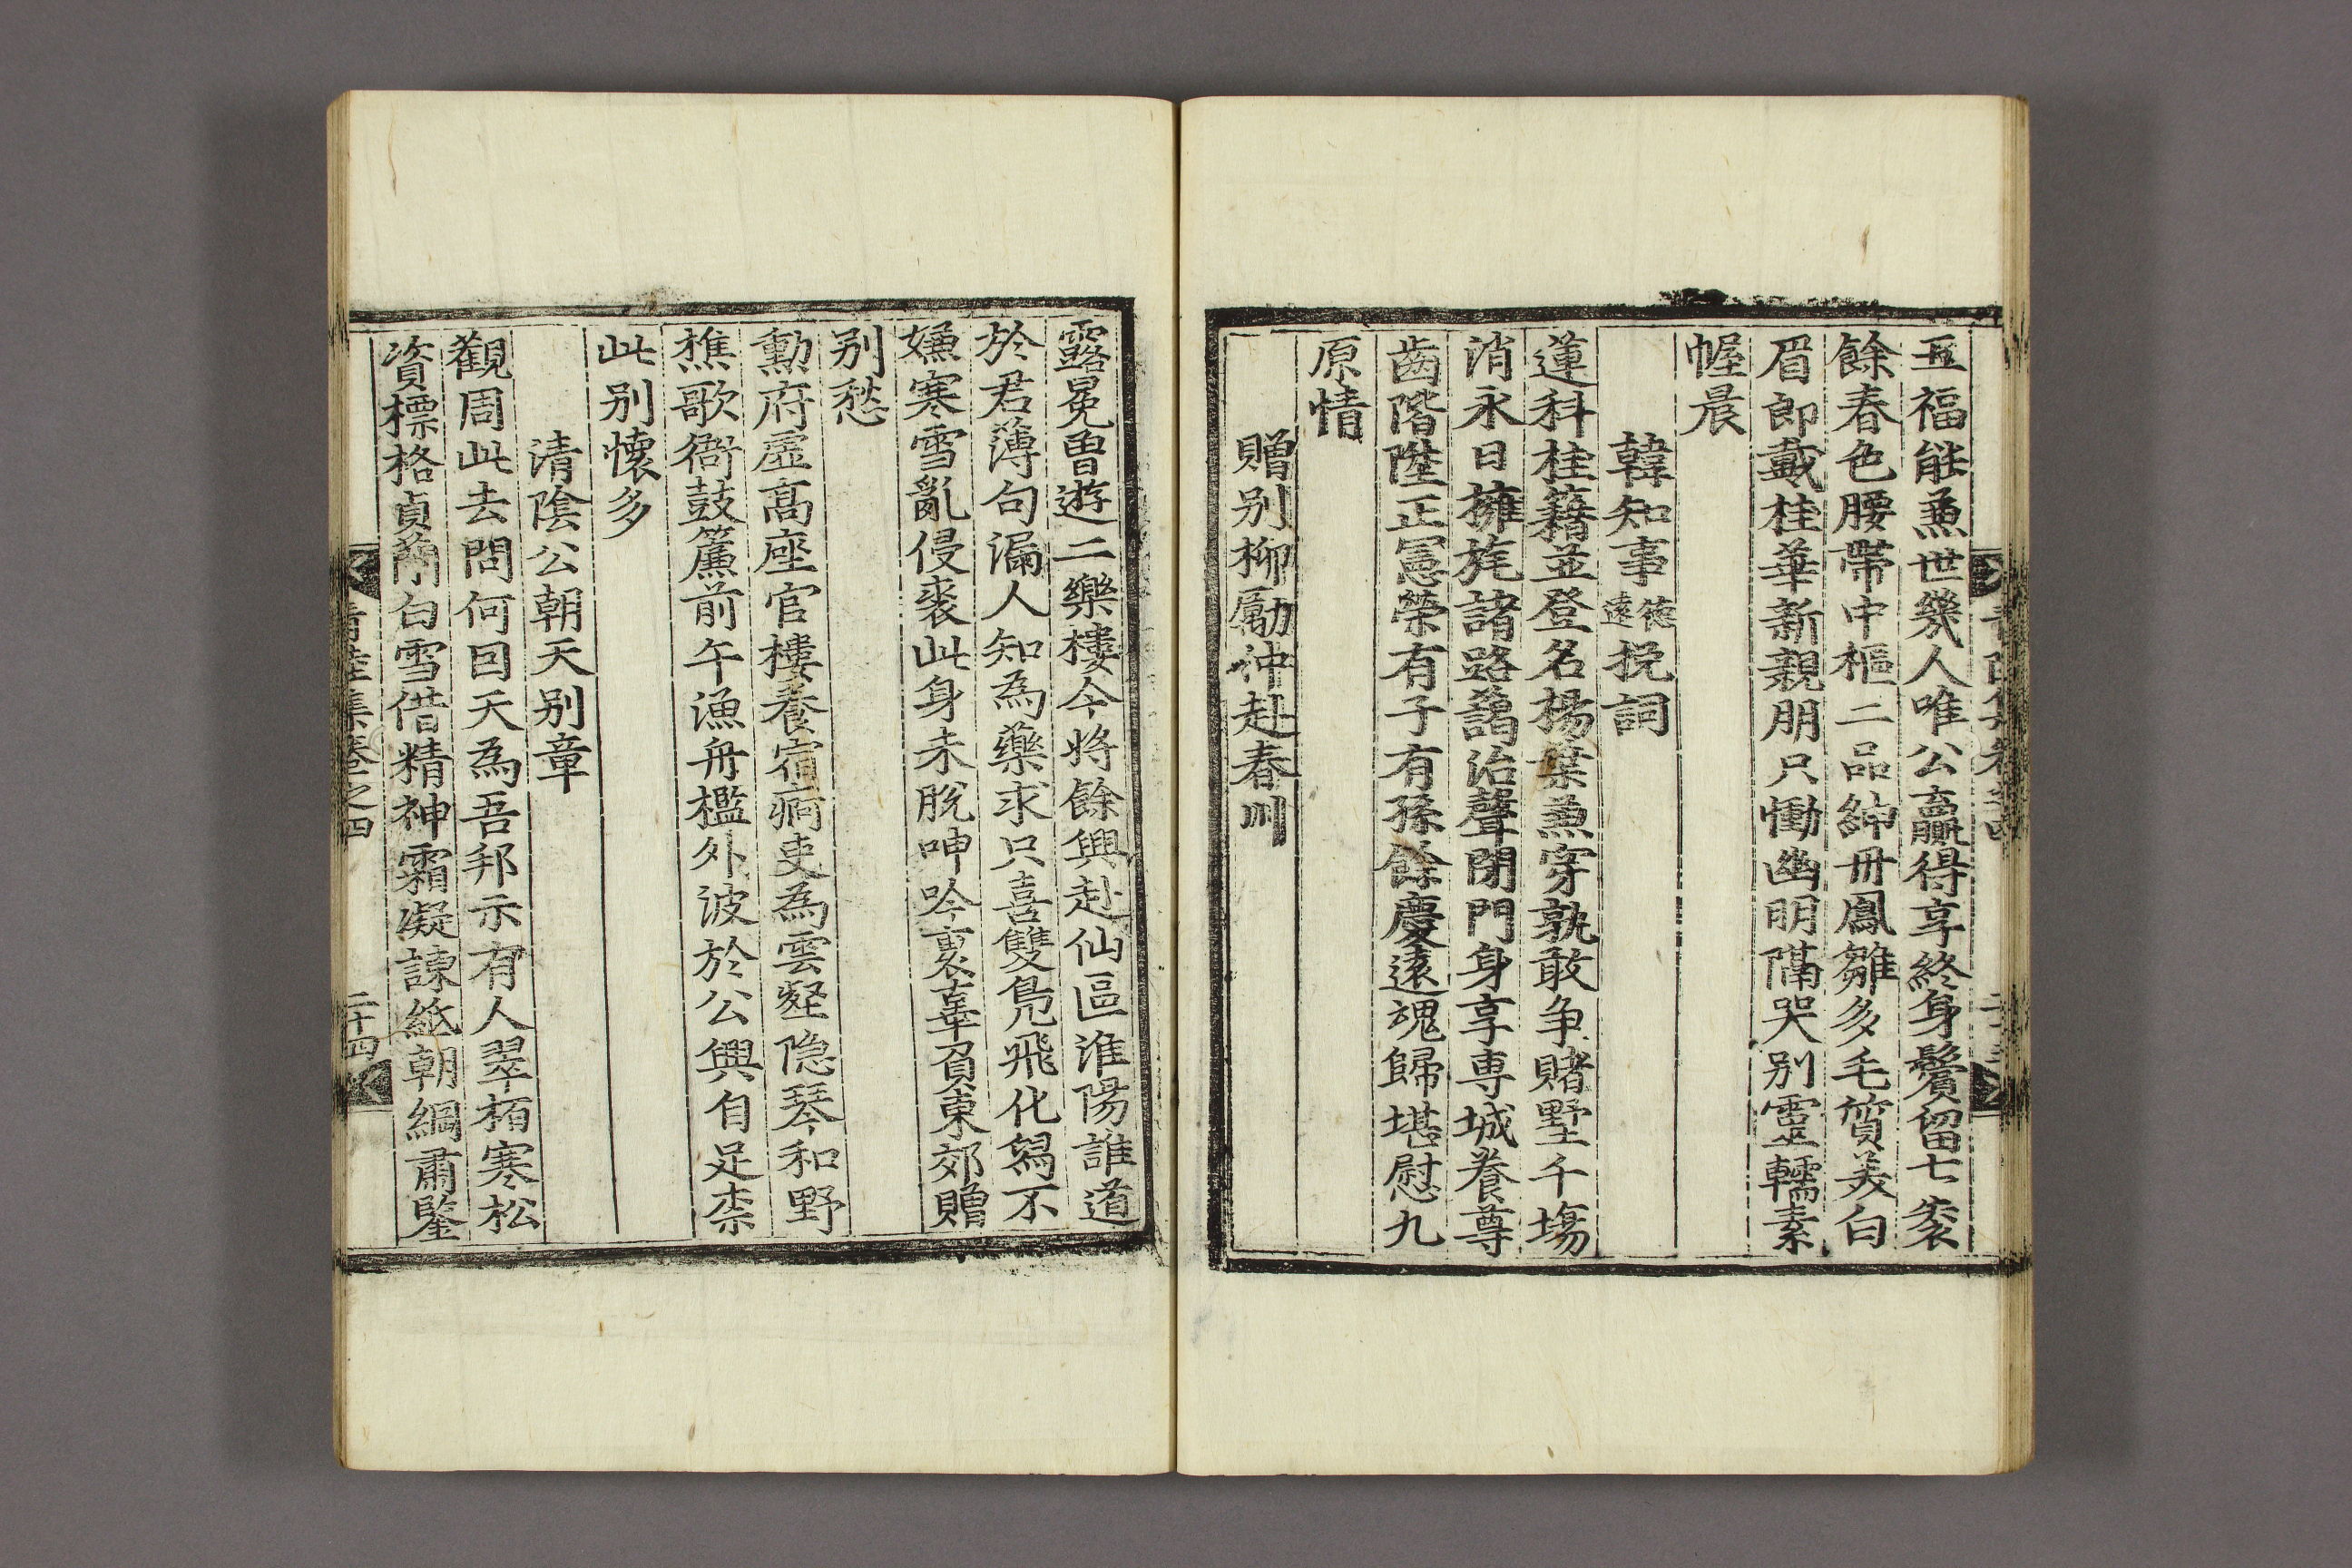 五福能兼世幾人唯公贏得享終身鬢留七袠
餘春色腰帶中樞二品紳丹鳳雛多毛質美白
眉郎戴桂華新親朋只慟幽明隔哭別靈轜素
幄晨
韓知事德遠挽詞
蓮科桂籍並登名楊葉兼穿孰敢争賭墅千塲
消永日擁旄諸路藹治聲閉門身享專城養尊
齒階陞正憲榮有子有孫餘慶遠魂歸堪慰九
原情
贈别柳勵仲赴春川
露冕曽遊二樂樓今將餘興赴仙區淮陽誰道
於君薄句漏人知為藥求只喜雙鳬飛化舃不
嫌寒雪亂侵裘此身未脫呻吟裏辜負東郊贈
别愁
勳府虛高座官樓養宿痾吏為雲壑隐琴和野
樵歌衙鼓簾前午漁舟檻外波於公興自足柰
此別懷多
清陰公朝天别章
觀周此去問何囙天為吾邦示有人翠栢寒松
資標格貞蘭白雪借精神霜凝諫紙朝綱肅鑒
集卷之四
二十四